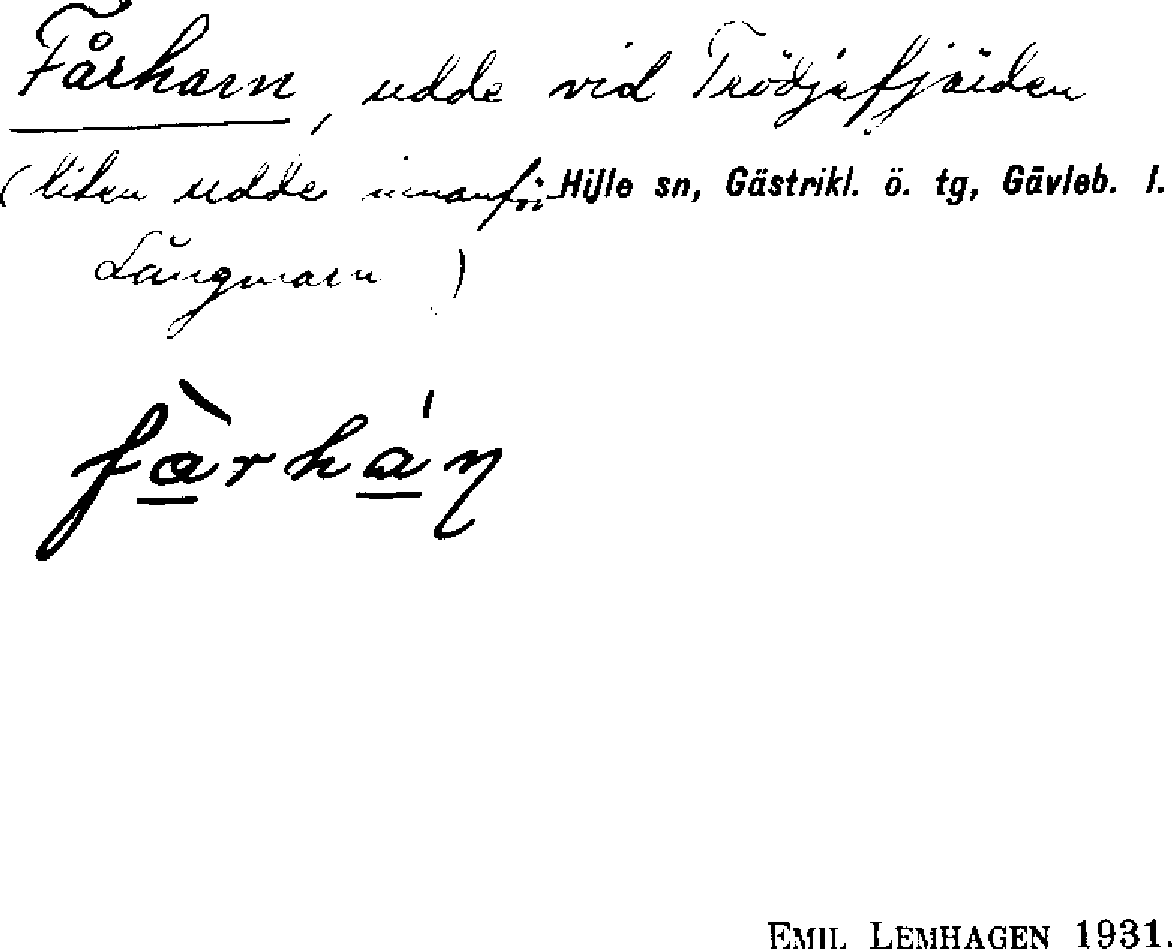 Fårharn, udde vid Trödjefjärden
(liten udde innanför Hille sn, Gästrikl. ö. tg, Gävleb. l.
Långmarn )
fàrhán
EMIL LEMHAGEN 1931.